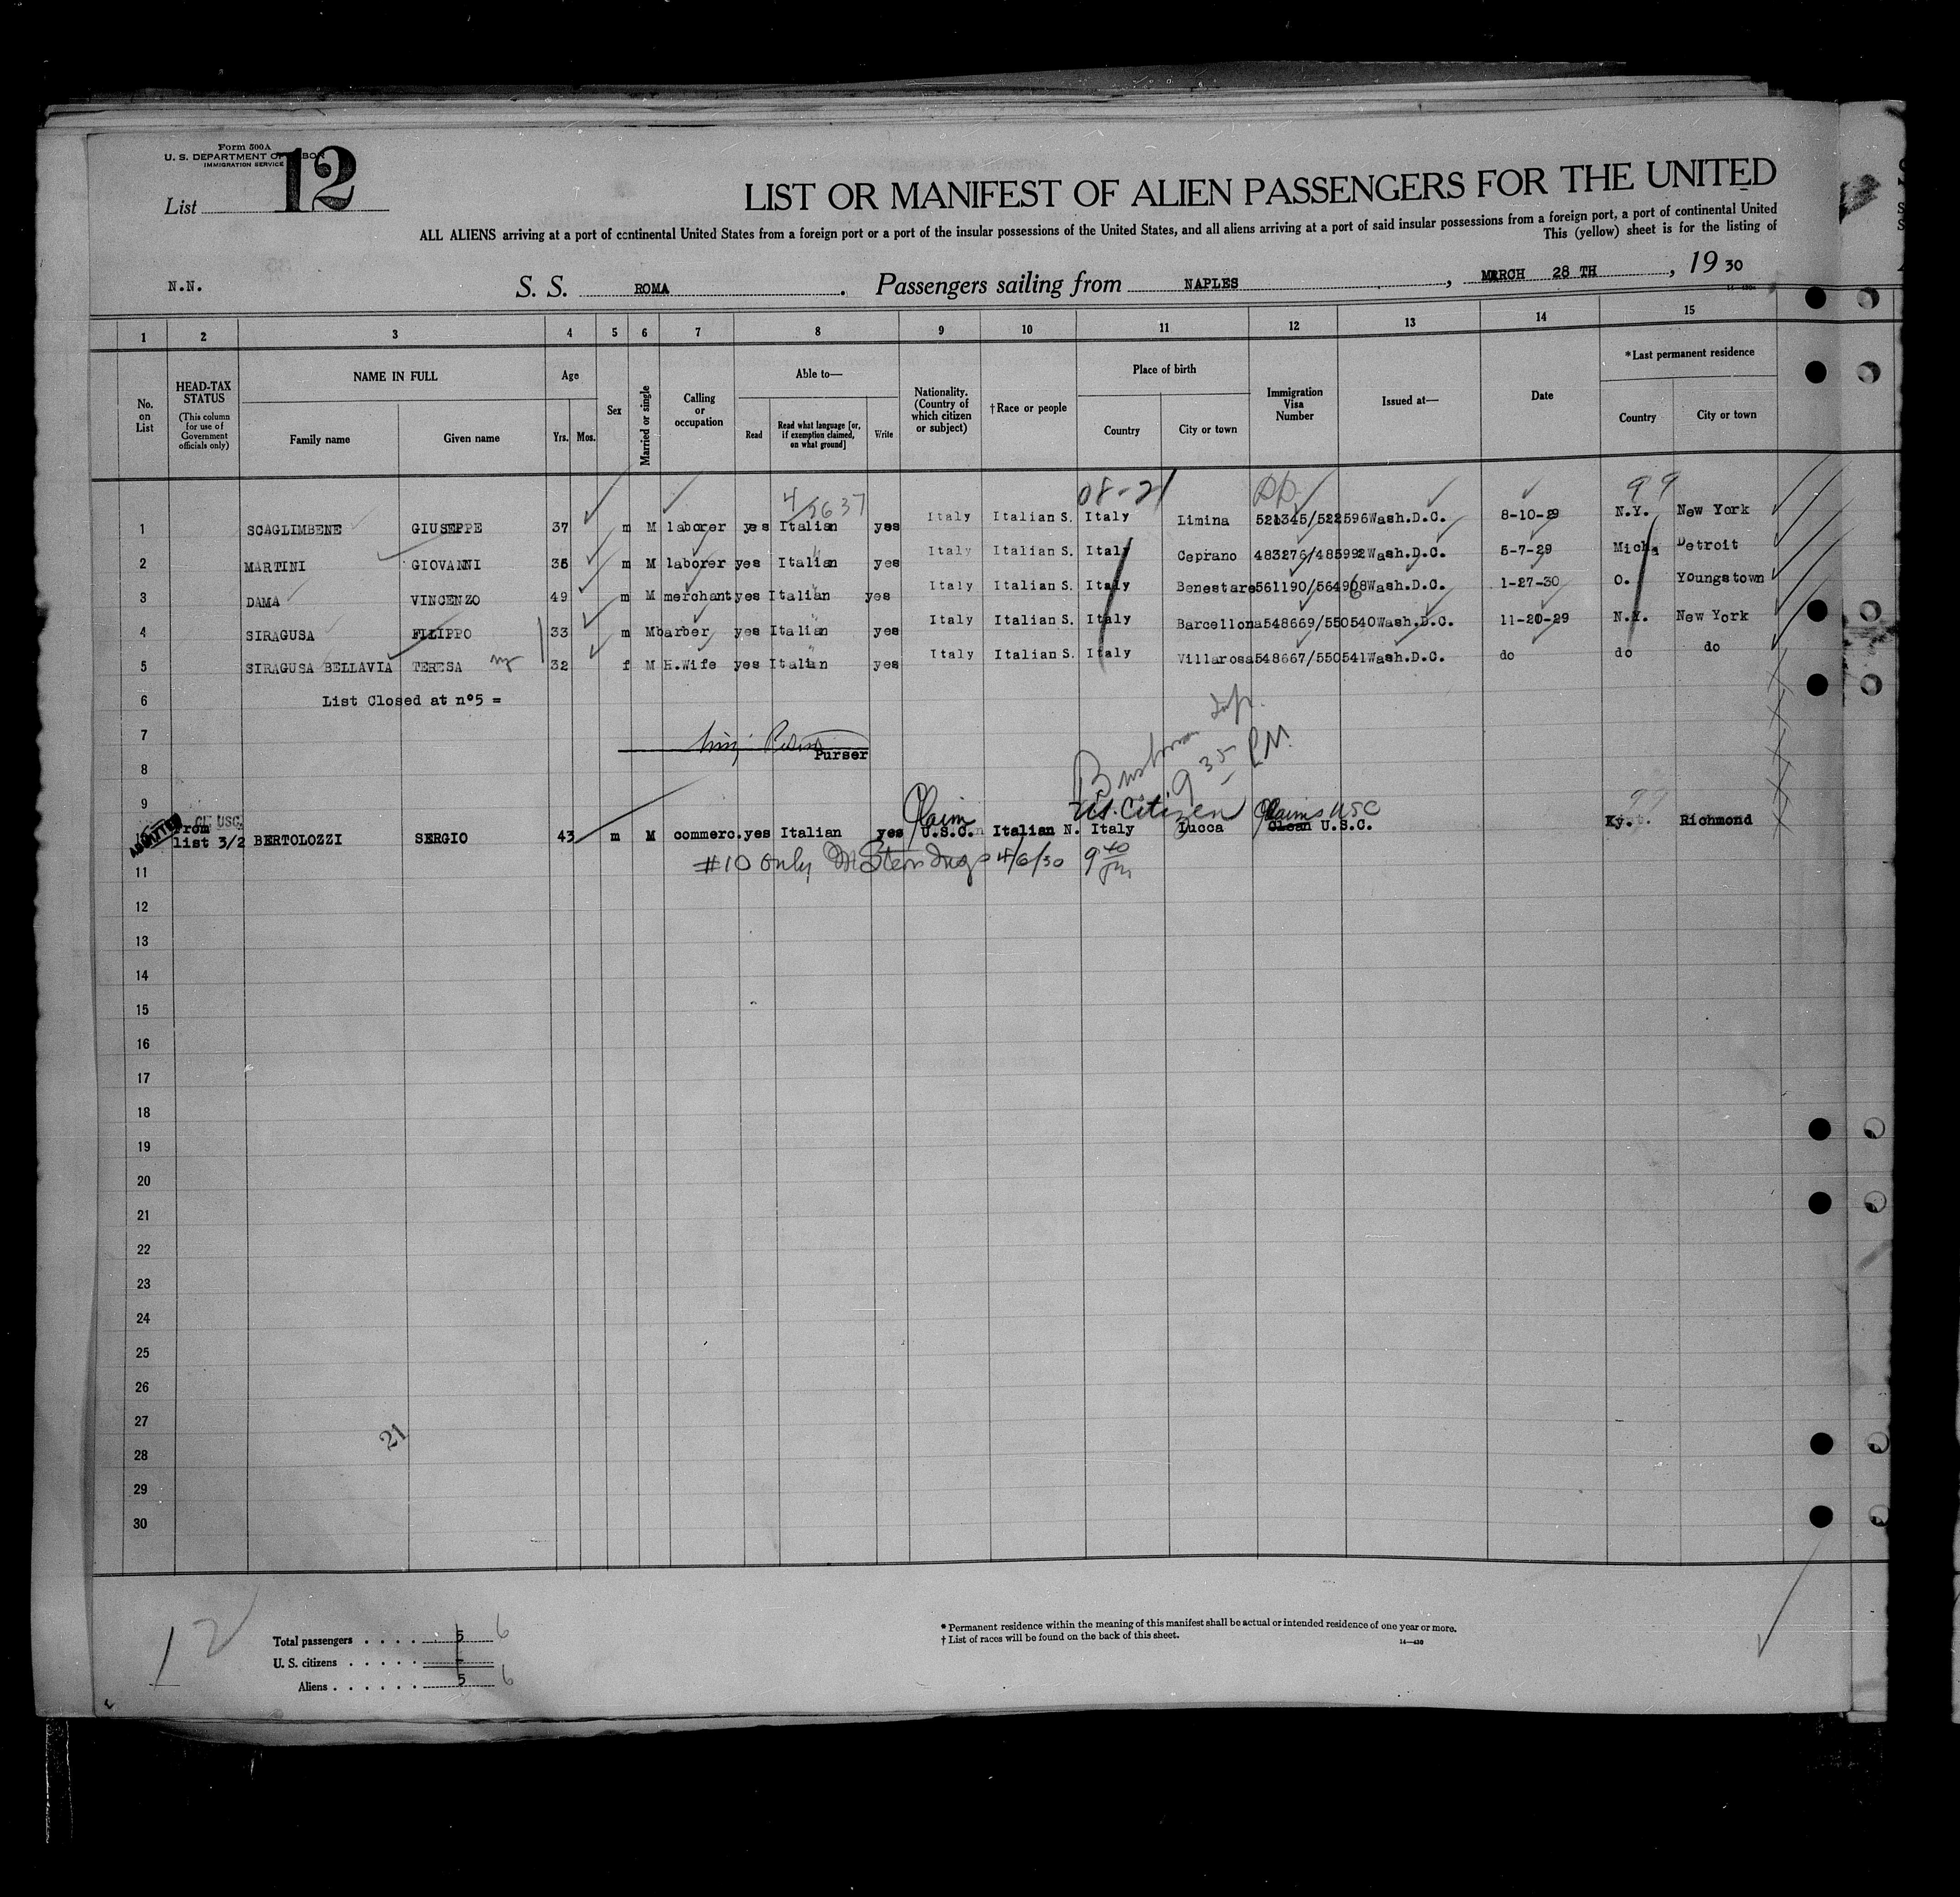 Form 500A
U. S. DEPARTMENT OF LABOR
IMMIGRATION SERVICE
List 12
LIST OR MANIFEST OF ALIEN PASSENGERS FOR THE UNITED
ALL ALIENS arriving at a port of continental United States from a foreign port or a port of the insular possessions of the United States, and all aliens arriving at a port of said insular possessions from a foreign port, a port of continental United
This (yellow) sheet is for the listing of
N.N. S. S. ROMA. Passengers sailing from NAPLES, MARCH 28 TH, 19 30
1 2 3 4 5 6 7 8 9 10 11 12 13 14 15
No. on List
HEAD-TAX STATUS
(This column for use of Government officials only)
NAME IN FULL
Family name Given name
Age
Yrs. Mos.
Sex
Married or single
Calling or occupation
Able to—
Read
Read what language [or, if exemption claimed, on what ground]
Write
Nationality. (Country of which citizen or subject)
†Race or people
Place of birth
Country City or town
Immigration Visa Number
Issued at—
Date
*Last permanent residence
Country City or town
08-21 99
1 SCAGLIMBENE GIUSEPPE 37 m M laborer yes Italian yes Italy Italian S. Italy Limina 521345/522596 Wash.D.C. 8-10-29 N.Y. New York
2 MARTINI GIOVANNI 36 m M laborer yes Italian yes Italy Italian S. Italy Ceprano 483276/485992 Wash.D.C. 5-7-29 Mich. Detroit
3 DAMA VINCENZO 49 m M merchant yes Italian yes Italy Italian S. Italy Benestare 561190/564908 Wash.D.C. 1-27-30 O. Youngstown
4 SIRAGUSA FILIPPO 33 m M barber yes Italian yes Italy Italian S. Italy Barcellona 548669/550540 Wash.D.C. 11-20-29 N.Y. New York
5 SIRAGUSA BELLAVIA TERESA 32 f M H.Wife yes Italian yes Italy Italian S. Italy Villarosa 548667/550541 Wash.D.C. do do do
6 List Closed at nº5 =
7
Purser
8
9 35 PM.
9
Claim U.S. Citizen Claims USC
ADMITTED From list 3/2 BERTOLOZZI SERGIO 43 m M commerc. yes Italian yes U.S.C. Italian N. Italy Lucca Clean U.S.C. Ky. Richmond
#10 only 4/6/30 9 40
11
12
13
14
15
16
17
18
19
20
21
22
23
24
25
26
27
21
28
29
30
12
Total passengers . . . . 5 6
U. S. citizens . . . . . . -
Aliens . . . . . . 5 6
* Permanent residence within the meaning of this manifest shall be actual or intended residence of one year or more.
† List of races will be found on the back of this sheet.
14—430